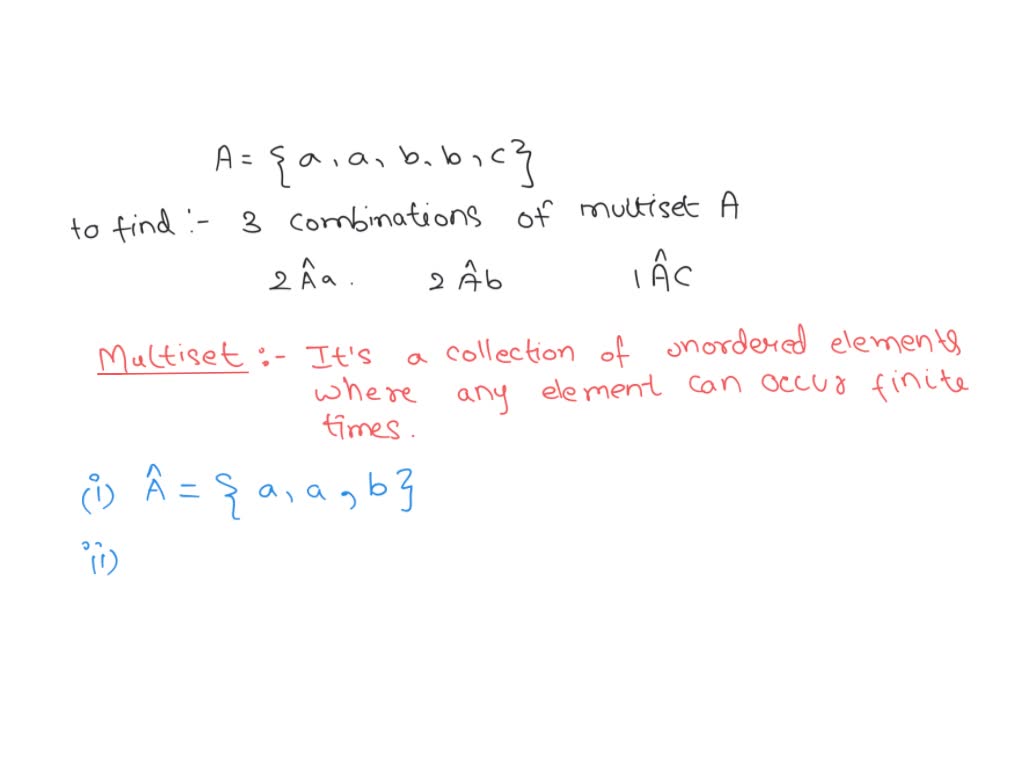 A = {a, a, b, b, c}
to find :- 3 combinations of multiset A
2 Âa. 2 Âb 1 ÂC
Multiset :- It's a collection of unordered elements
where any element can occur finite
times.
(i) Â = {a, a, b}
ii)